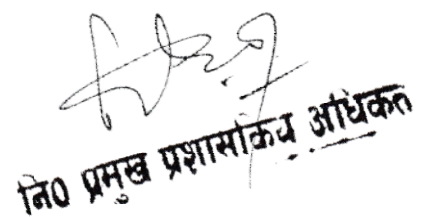 नि0 प्रमुख प्रशासकिय अधिकृत